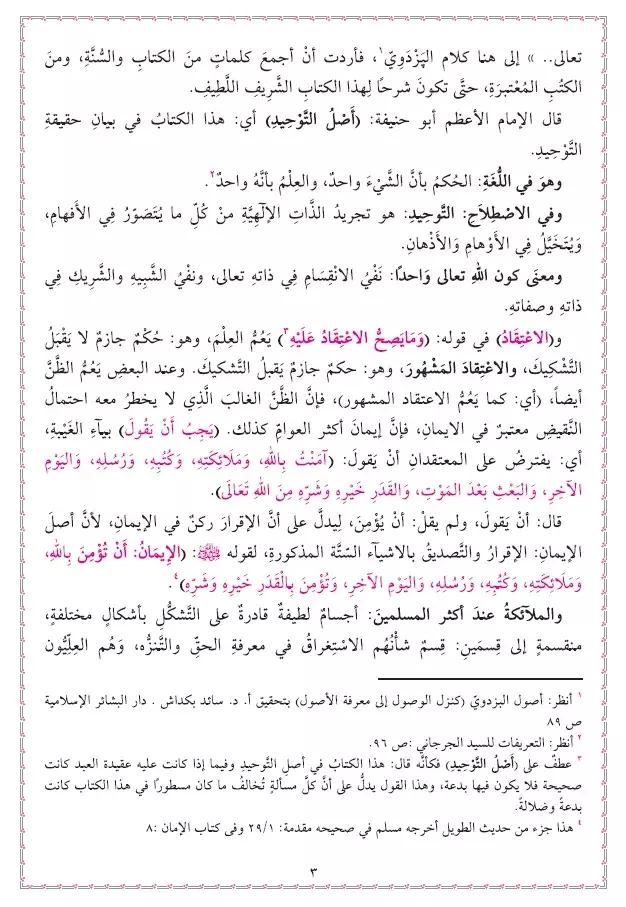 تعالى.. » إلى هنا كلام البَزْدَوِيّ١، فأردت أنْ أجمعَ كلماتٍ منَ الكتابِ والسُّنَّةِ، ومنَ
الكتُبِ المُعْتبرَةِ، حتَّى تكونَ شرحًا لِهذا الكتابِ الشَّرِيفِ اللَّطِيفِ.
قال الإمام الأعظم أبو حنيفة: (أَصْلُ التَّوْحِيدِ) أي: هذا الكتابُ في بيانِ حقيقةِ
التَّوْحِيدِ.
وهوَ في اللُّغَةِ: الحُكمُ بأنَّ الشَّيْءَ واحدٌ، والعِلْمُ بأنَّهُ واحدٌ٢.
وفي الاصْطِلاَحِ: التَّوحِيدِ: هو تجريدُ الذَّاتِ الإلٰهِيَّةِ مِنْ كُلِّ ما يُتَصَوَّرُ فِي الأَفهامِ،
وَيُتَخَيَّلُ فِي الأَوْهامِ وَالأَذْهانِ.
ومعنَى كون اللهِ تعالى وَاحدًا: نَفْيُ الانْقِسَامِ فِي ذاتهِ تعالى، ونفْيُ الشَّبِيهِ والشَّرِيكِ فِي
ذاتهِ وصفاتهِ.
و(الاعْتِقَادُ) في قوله: (وَمَايَصِحُّ الاعْتِقَادُ عَلَيْهِ٣) يَعُمُّ العِلْمَ، وهو: حُكْمٌ جازمٌ لا يَقْبَلُ
التَّشْكِيكَ، والاعْتِقادَ المَشْهُورَ، وهو: حكمٌ جازمٌ يَقبلُ التَّشكيكَ. وعند البعضِ يَعُمُّ الظَّنَّ
أيضاً، (أي: كما يَعُمُّ الاعتقاد المشهور)، فإنَّ الظَّنَّ الغالبَ الَّذِي لا يخطرُ معه احتمالُ
النَّقيضِ معتبرٌ في الايمانِ، فإنَّ إيمانَ أكثر العوامِّ كذلك. (يَجِبُ أَنْ يَقُولَ) بيآءِ الغَيْبَةِ،
أي: يفترضُ على المعتقدانِ أنْ يَقولَ: (آمَنْتُ بِاللهِ، وَمَلَائِكَتِهِ، وَكُتُبِهِ، وَرُسُلِهِ، وَاليَوْمِ
الآخِرِ، وَالبَعْثِ بَعْدَ المَوْتِ، وَالقَدَرِ خَيْرِهِ وَشَرِّهِ مِنَ اللهِ تَعَالَى).
قال: أنْ يَقولَ، ولم يقلْ: أنْ يُؤْمِنَ، لِيدلَّ على أنَّ الإقرارَ ركنٌ في الإيمانِ، لأنَّ أصلَ
الإيمانِ: الإقرارُ والتَّصديقُ بالاشيآءِ السِّتَّة المذكورةِ، لقوله ﷺ: (الإِيمَانُ: أَنْ تُؤْمِنَ بِاللهِ،
وَمَلَائِكَتِهِ، وَكُتُبِهِ، وَرُسُلِهِ، وَاليَوْمِ الآخِرِ، وَتُؤْمِنَ بِالْقَدَرِ خَيْرِهِ وَشَرِّهِ)٤.
والملآئكةُ عندَ أكثر المسلمينَ: أجسامٌ لطيفةٌ قادرةٌ على التَّشكُّلِ بأشكالٍ مختلفةٍ،
منقسمةٍ إلى قِسمَينِ: قِسمٌ شأْنُهُم الاسْتِغراقُ في معرفةِ الحقِّ والتَّنزُّه، وَهُم العِلِّيُّون
١ أنظر: أصول البزدويّ (كنزل الوصول إلى معرفة الأصول) بتحقيق أ. د. سائد بكداش . دار البشائر الإسلامية
ص ٨٩
٢ أنظر: التعريفات للسيد الجرجاني :ص ٩٦.
٣ عطفٌ على (أَصْلُ التَّوْحِيدِ) فكأنَّه قال: هذا الكتابُ في أصلِ التَّوحيدِ وفيما إذا كانت عليه عقيدة العبد كانت
صحيحة فلا يكون فيها بدعة، وهذا القول يدلُّ على أنَّ كلَّ مسألةٍ تُخالفُ ما كان مسطورًا في هذا الكتاب كانت
بدعةً وضلالةً.
٤ هذا جزء من حديث الطويل أخرجه مسلم في صحيحه مقدمة: ٢٩/١ وفى كتاب الإمان :٨
٣